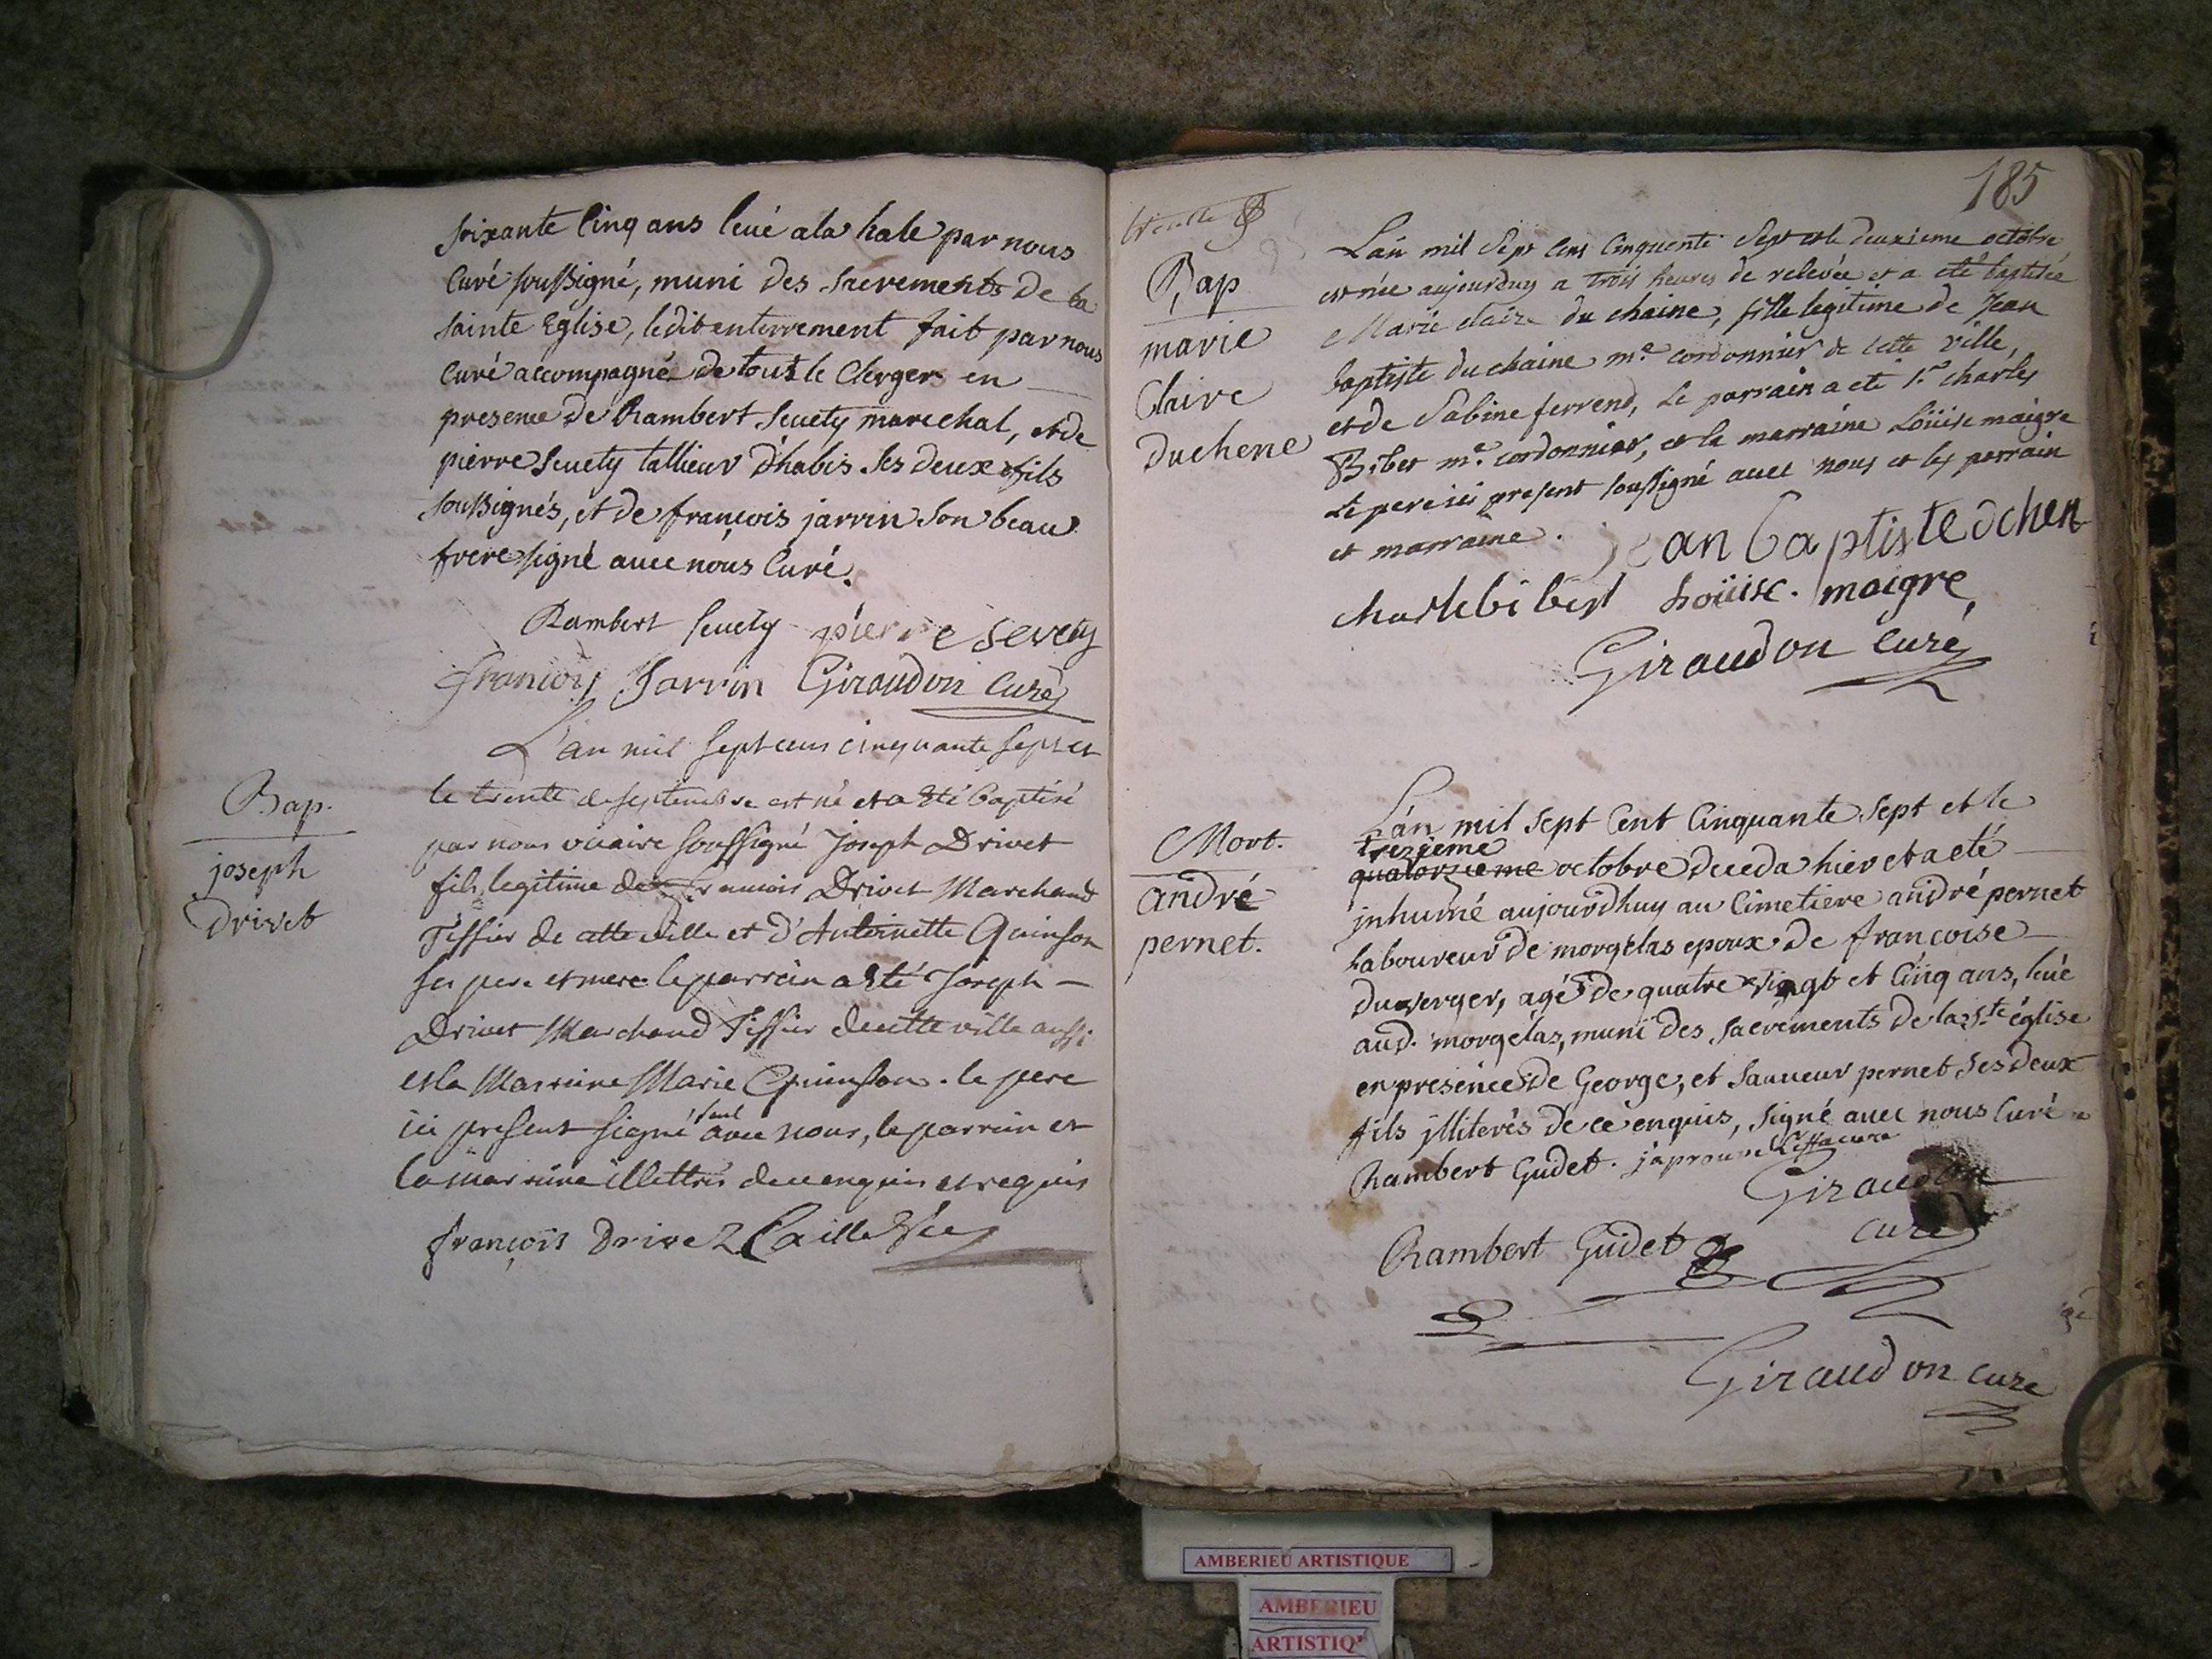 soixante Cinq ans levé ala hale par nous
Curé soussigné, muni des sacrements de la
sainte Eglise, ledit enterrement fait par nous
Curé accompagné de tout le Clerger en
presence de Rambert Sevety marechal, et de
pierre Sevety tallieur d'habis ses deux fils
soussignés, et de françois jarrin son beau
frere signé avec nous Curé.
Rambert Sevety pierre severy
francois Jarrin Giraudon Curé
Bap.
joseph
drivet
L'an mil sept cens cinquante sept et
le trente de septembre est né et a été baptisé
par nous vicaire soussigné Joseph Drivet
fils legitime de francois Drivet Marchand
Tissier de cette ville et d'Antoinette Quinson
ses pere et mere le parrain a été Joseph
Drivet Marchand Tissier de cette ville aussi
et la Marraine Marie Quinson. le pere
ici present signé seul avec nous, le parrain et
la marraine illettrés de ce enquis et requis
françois Drivez Caille Vic
185
Bap
marie
Claire
duchene
Lan mil Sept Cens Cinquente Sept et le deuxieme octobre
est née aujourduy a trois heures de relevée et a eté baptisée
Marie claire du chaine, fille legitime de Jean
baptiste du chaine me cordonnier de cette ville,
et de Sabine ferrend, Le parrain a ete sr charles
Bibet me cordonnier, et la marraine Loüise maigre
Le pere ici present soussigné avec nous et les parrain
et marraine.
jean baptiste dchen
charle bibest Loüise. maigre,
Giraudon curé
Mort.
andré
pernet.
L'an mil sept Cent Cinquante sept et le
trezieme
quatorzieme octobre deceda hier et a eté
jnhumé aujourdhuy au Cimetiere andré pernet
Laboureur de morgelas epoux de francoise
duverger, agé de quatre vingt et Cinq ans, levé
aud. morgelas, muni des sacrements de la ste église
en presence de George, et Sauveur pernet ses deux
fils jlliterés de ce enquis, signé avec nous Curé
Rambert Gudet. japrouve Leffacure
Giraudon
curé
Rambert Gudet
Giraudon curé
AMBERIEU ARTISTIQUE
AMBERIEU
ARTISTIQ